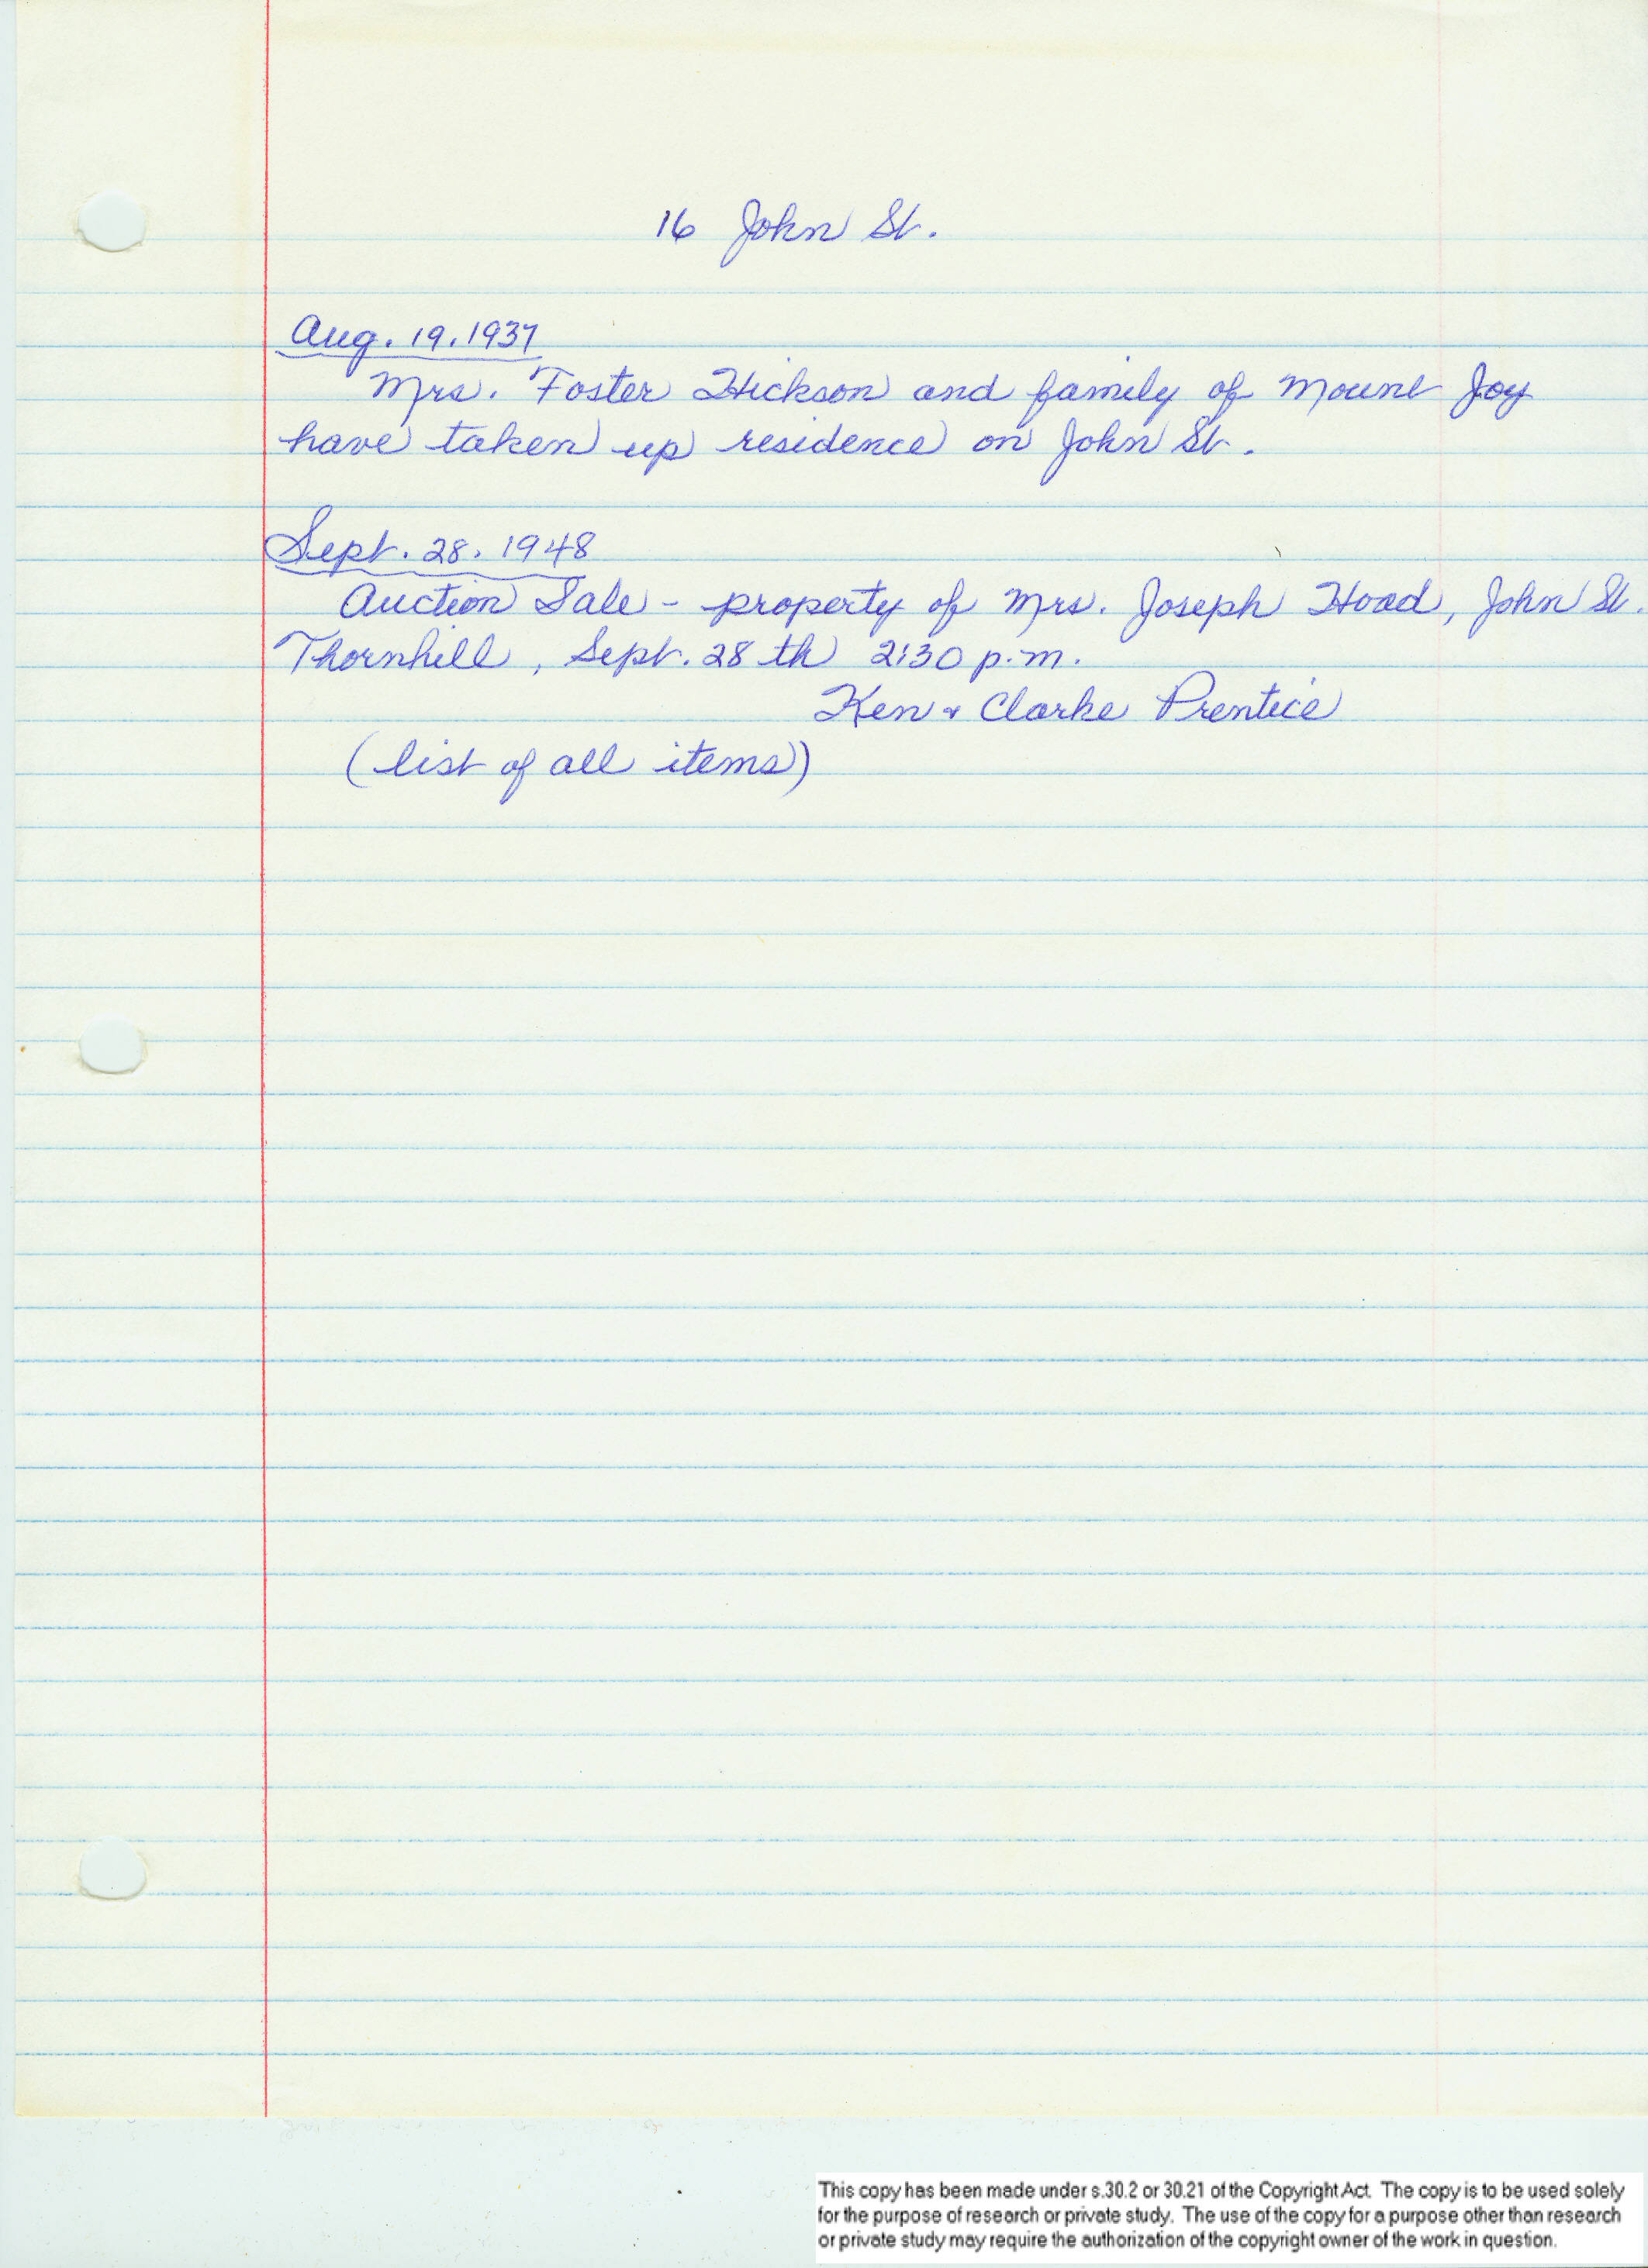 16 John St.
Aug. 19. 1937
Mrs. Foster Hickson and family of Mount Joy
have taken up residence on John St.
Sept. 28. 1948
Auction Sale - property of Mrs. Joseph Hoad, John St.
Thornhill, Sept. 28 th 2:30 p.m.
Ken & Clarke Prentice
(list of all items)
This copy has been made under s.30.2 or 30.21 of the Copyright Act. The copy is to be used solely
for the purpose of research or private study. The use of the copy for a purpose other than research
or private study may require the authorization of the copyright owner of the work in question.